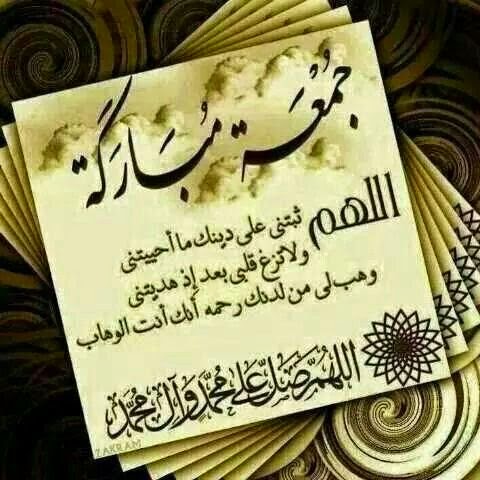 جُمْعَة مُبَارَكَة
اللهم ثبتنى على دينك ما أحييتنى
ولاتزغ قلبى بعد إذ هديتنى
وهب لى من لدنك رحمه أنك أنت الوهاب
اللهُمَّ صَلِّ عَلى مُحمَّدٍ وَآلِ مُحمَّد
ZAKRAM